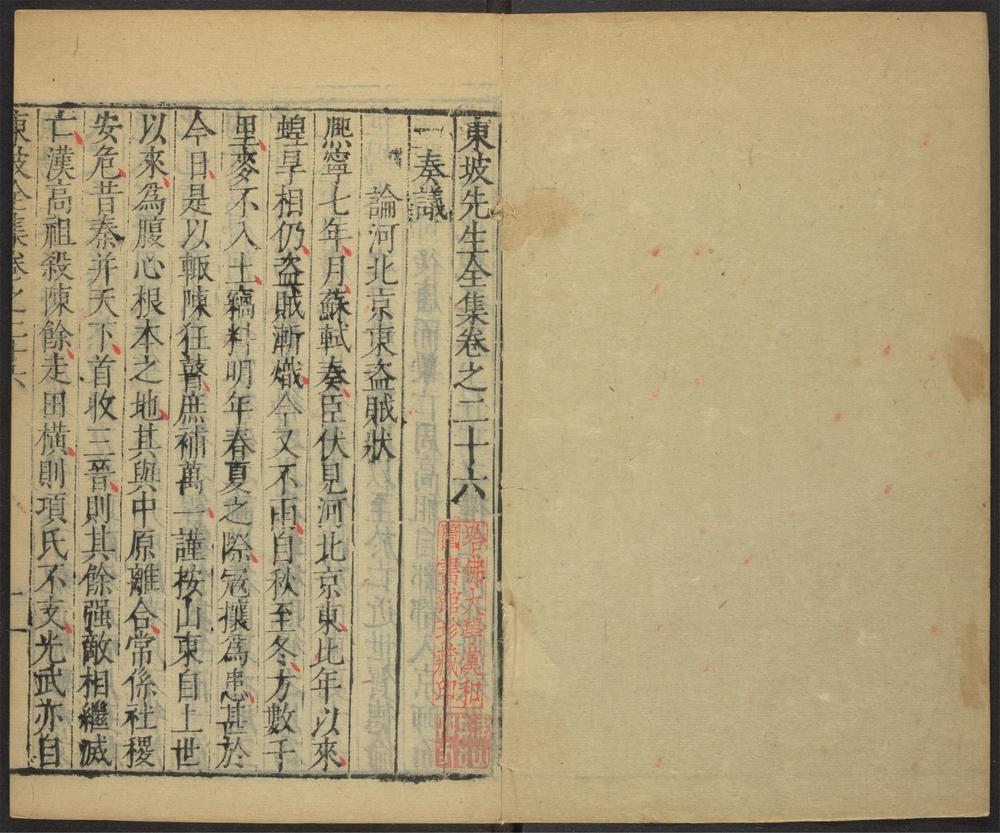 東坡先生全集卷之二十六
奏議
論河北京東盜賊狀
熈寧七年月蘇軾奏臣伏見河北京東比年以來
蝗旱相仍盜賊漸熾今又不雨自秋至冬方數千
里麥不入土竊料明年春夏之際寇攘爲患甚於
今日是以輙陳狂瞽庶補萬一謹按山東自上世
以來爲腹心根本之地其與中原離合常係社稷
安危昔秦并天下首收三晉則其餘强敵相繼滅
亡漢高祖殺陳餘走田橫則項氏不支光武亦自
東坡全集卷之二十六
一
哈佛大學漢和
圖書館珍藏印